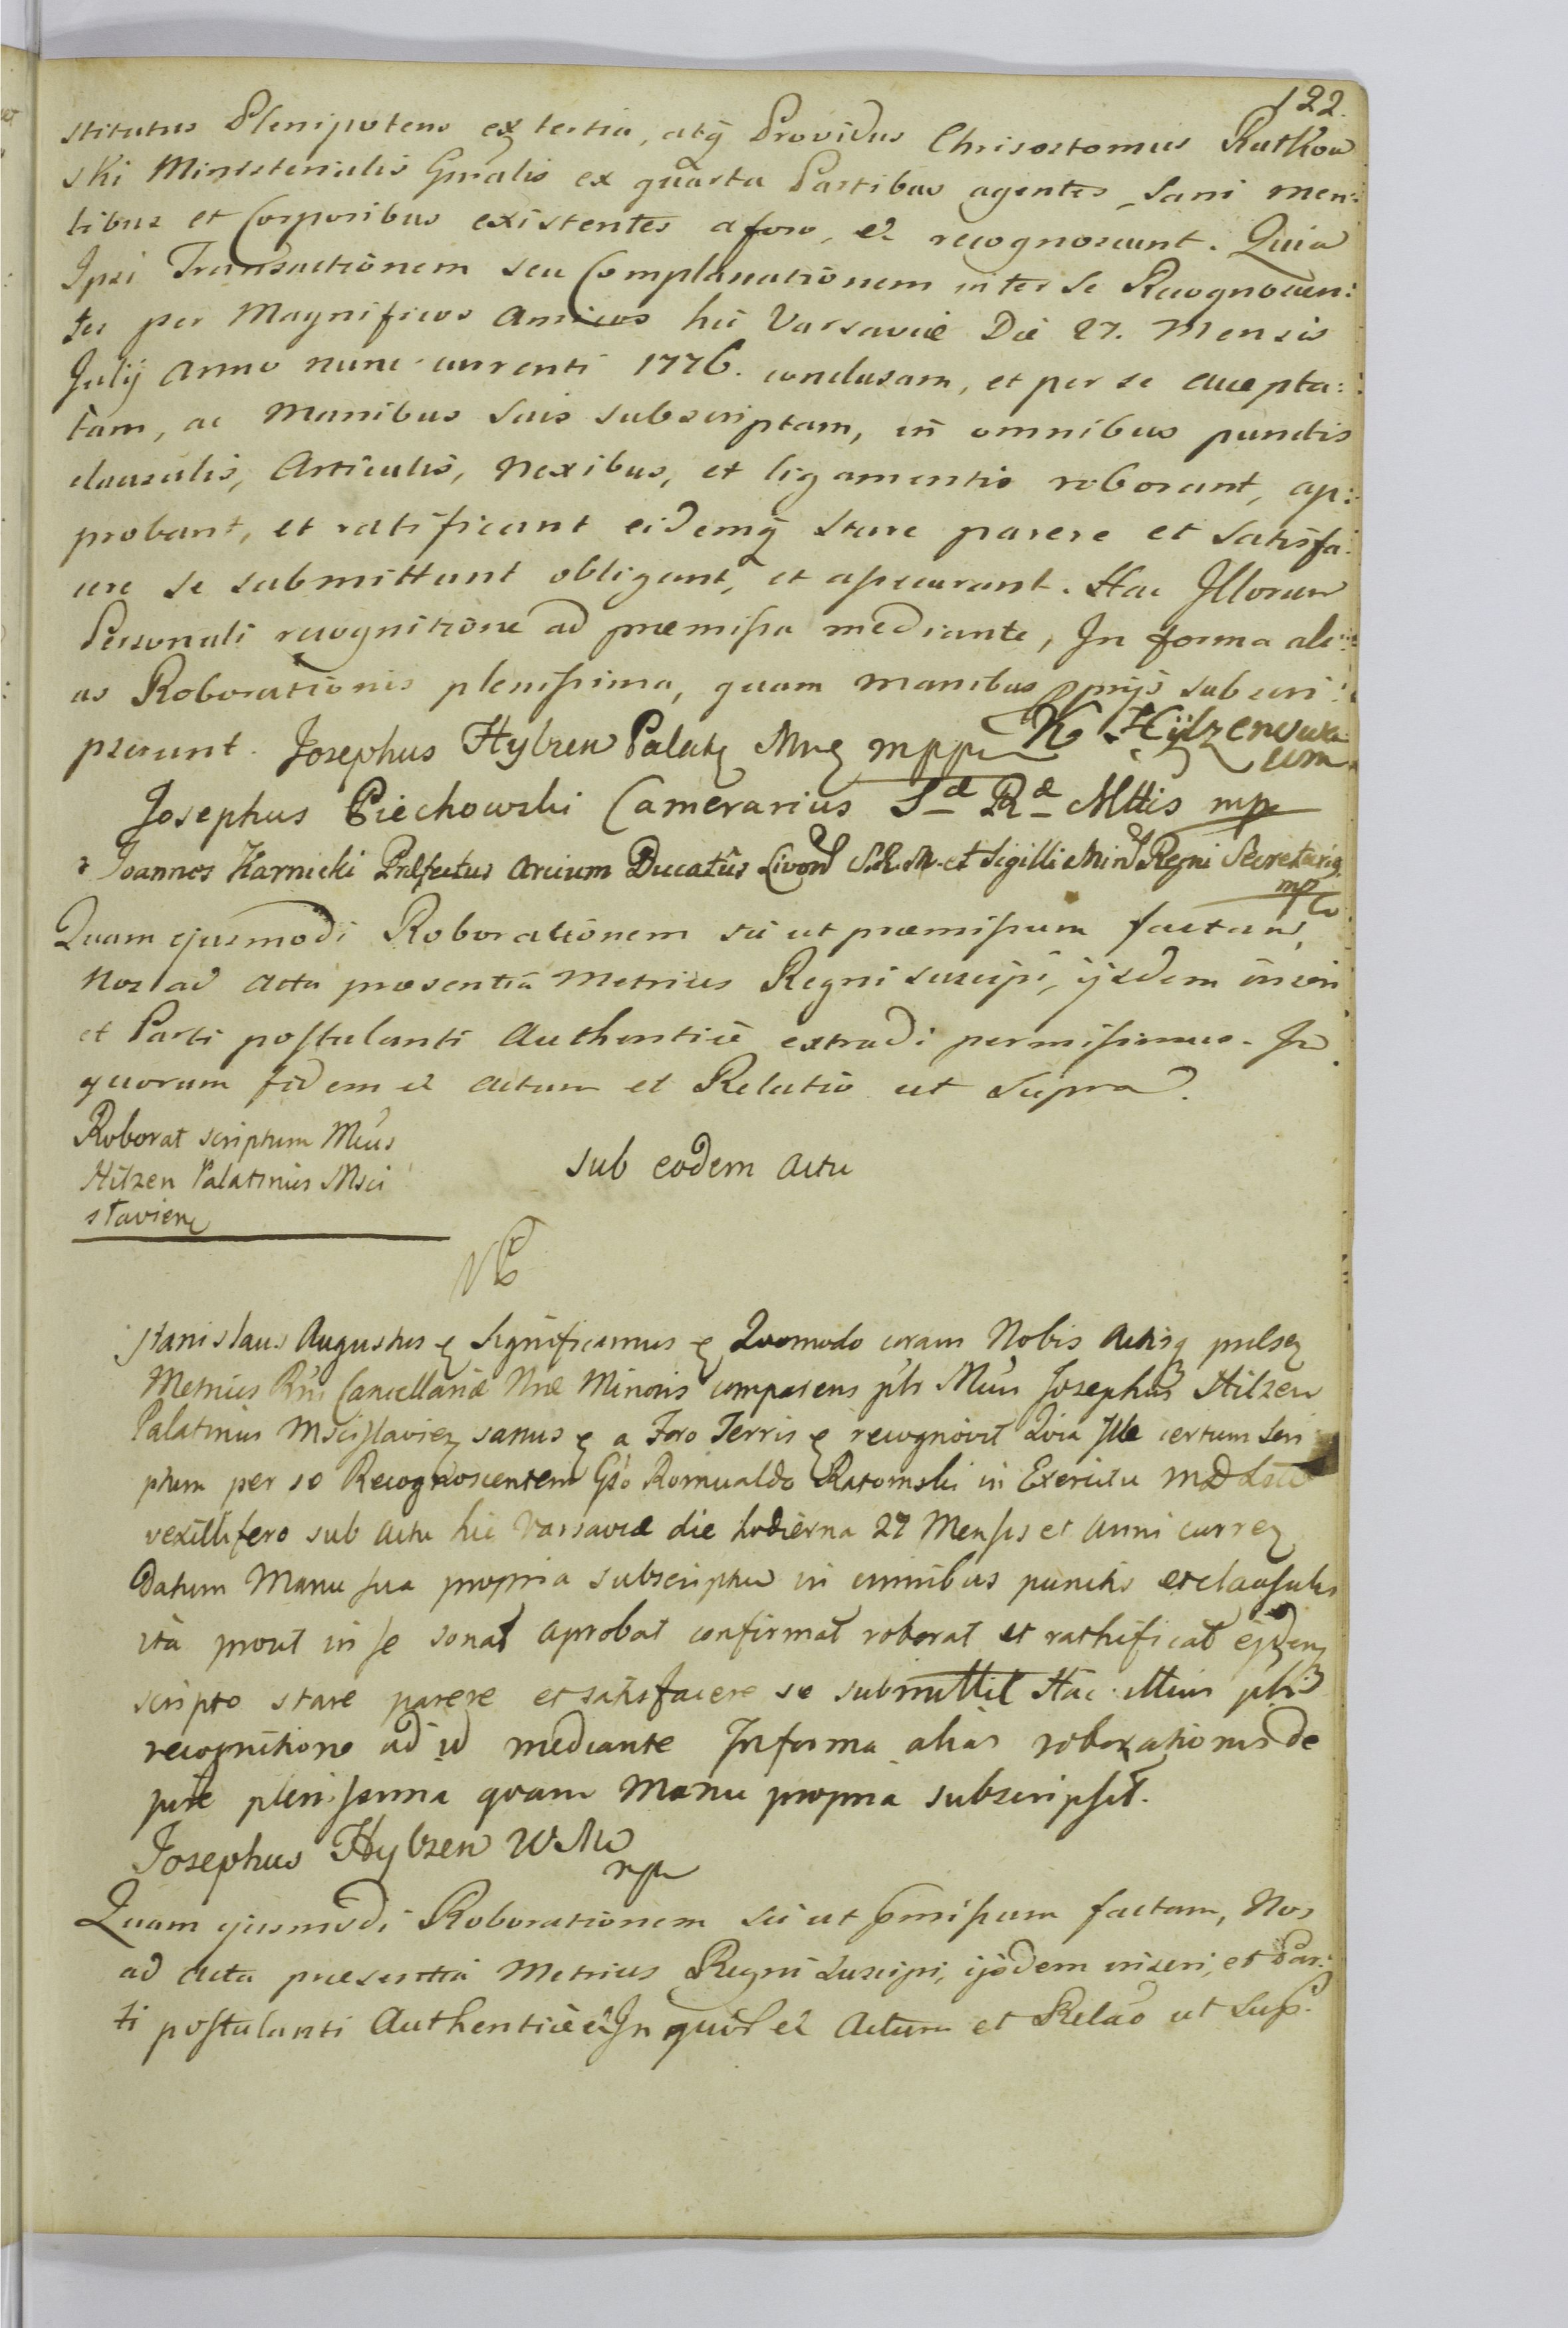 122.
stitutus Plenipotens ex tertia, atq Providus Chrisostomus Rutkow
ski Ministerialis Gnralis ex quarta Partibus agentes, Sani men:
tibus et Corporibus existentes a foro, et recognoscunt. Quia
Ipsi Transactionem seu Complanationem inter Se Recognoscen:
tes per Magnificos Amicos hic Varsaviæ Die 27. Mensis
Julij Anno nunc currenti 1776. conclusam, et per se accepta:
tam, ac Manibus Suis subscriptam, in omnibus punctis
clausulis, Articulis, Nexibus, et ligamentis roborant, ap:
probant, et ratificant eidemq stare parere et satisfa:
cere se submittunt obligant, et assecurant. Hac Illorum
Personali recognitione ad præmissa mediante, In forma ali:
as Roborationis plenissima, quam manibus ppriis subscri:
pserunt. Josephus Hylzen Palatq Mng mppr K Hÿlzenowa
Josephus Piechowski Camerarius Sæ Ræ Mttis mp
Joannes Karnicki Præfectus Arcium Ducatûs Livon S.R.M. et Sigilli Min Regni Secretariq
mp
Quam ejusmodi Roborationem sic ut præmissum factam,
Nos ad Acta præsentia Metrices Regni suscipi, ijsdem inseri
et Parti postulanti Authentice extradi permisimus. In
quorum fidem et Actum et Relatio ut Supra.
Roborat scriptum Mcus
Hilzen Palatinus Msci
slavien
sub eodem Actu
Stanislaus Augustus Significamus Quomodo coram Nobis Actisq
Metrices Rni Cancellariæ Nræ Minoris comparens plr Mcus Josephus Hilzen
Palatinus Mscislavien sanus a Foro Terris recognovit Quia Ille certum Scri
ptum per se Recognoscentem Gso Romualdo Ratomski in Exercitu MD Lit
vexillifero sub Actu hic Varsaviæ die hodierna 27 Mensis et Anni curren
Datum Manu sua propria subscriptu in omnibus punctis et clausulis
ità prout in se sonat aprobat confirmat roborat et rathificat ejdem
scripto stare parere et satisfacere se submittit Hac illius plri
recognitione ad id mediante Informa aliàs roborationis de
jure plenissima qvam Manu propria subscripsit.
Josephus Hylzen WM
mp
Quam ejusmodi Roborationem sic ut pmissum factam, Nos
ad Acta præsentia Metrices Regni Suscipi, ijsdem inseri, et Par:
ti postulanti Authentice et In quor et Actum et Relao ut Sup.